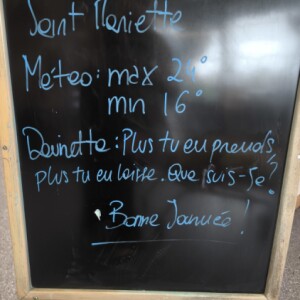 Saint Mariette
Météo : max 24°
min 16°
Devinette : Plus tu en prends,
plus tu en laisse. Que suis-je ?
Bonne Journée !